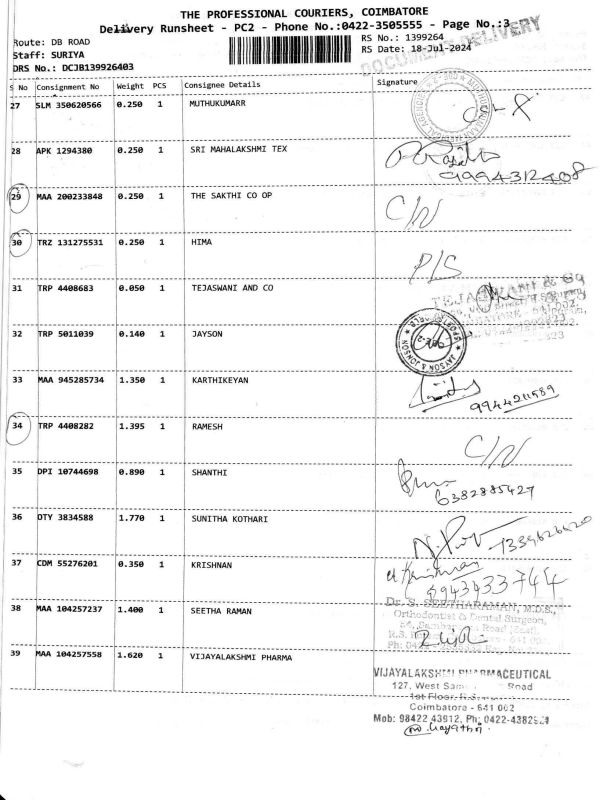 THE PROFESSIONAL COURIERS, COIMBATORE
Delivery Runsheet - PC2 - Phone No.:0422-3505555 - Page No.:3
Route: DB ROAD
RS No.: 1399264
Staff: SURIYA
RS Date: 18-Jul-2024
DOCUMENT DELIVERY
DRS No.: DCJB139926403
S No Consignment No Weight PCS Consignee Details Signature
27 SLM 350620566 0.250 1 MUTHUKUMARR
28 APK 1294380 0.250 1 SRI MAHALAKSHMI TEX
9994312408
29 MAA 200233848 0.250 1 THE SAKTHI CO OP C/N
30 TRZ 131275531 0.250 1 HIMA P/S
31 TRP 4408683 0.050 1 TEJASWANI AND CO TEJASWANI & Co
32 TRP 5011039 0.140 1 JAYSON JAYSON & JONSON
33 MAA 945285734 1.350 1 KARTHIKEYAN
9944211589
34 TRP 4408282 1.395 1 RAMESH C/N
35 DPI 10744698 0.890 1 SHANTHI
6382885427
36 OTY 3834588 1.770 1 SUNITHA KOTHARI
37 CDM 55276201 0.350 1 KRISHNAN
8943433744
38 MAA 104257237 1.400 1 SEETHA RAMAN Dr. S. SEETHARAMAN, M.D.S.,
Orthodontist & Dental Surgeon,
39 MAA 104257558 1.620 1 VIJAYALAKSHMI PHARMA
VIJAYALAKSHMI PHARMACEUTICAL
127, West Road
1st Floor, R.S.
Coimbatore - 641 002
Mob: 98422 43912, Ph: 0422-4382